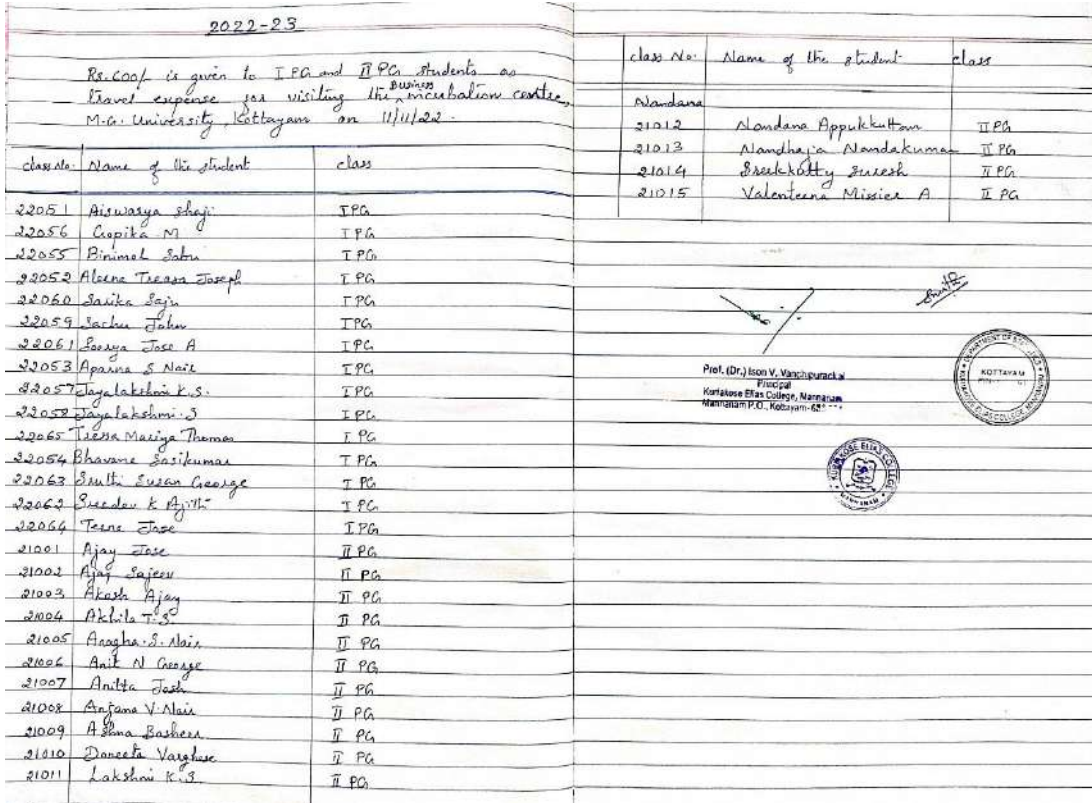 2022-23
Rs. 600/- is given to I PG and II PG students as
travel expense for visiting the Business incubation centre,
M.G. University, Kottayam on 11/11/22.
class No. Name of the student class
22051 Aiswarya Shaji I PG
22056 Gopika M I PG
22055 Binimol Sabu I PG
22052 Aleena Treasa Joseph I PG
22060 Sarika Saju I PG
22059 Sachu John I PG
22061 Soorya Jose A I PG
22053 Aparna S Nair I PG
22057 Jayalakshmi K.S. I PG
22058 Jayalakshmi.S I PG
22065 Tressa Mariya Thomas I PG
22054 Bhavane Sasikumar I PG
22063 Sruthi Susan George I PG
22062 Sreedev K Ajith I PG
22064 Teena Jose I PG
21001 Ajay Jose II PG
21002 Ajay Sajeev II PG
21003 Akash Ajay II PG
21004 Akhila T.S II PG
21005 Anagha.S.Nair II PG
21006 Anit N George II PG
21007 Anitta Josh II PG
21008 Anjana V.Nair II PG
21009 Ashna Basheer II PG
21010 Daneeta Varghese II PG
21011 Lakshmi K.S II PG
class No. Name of the student class
Nandana
21012 Nandana Appukkuttan II PG
21013 Nandhaja Nandakumar II PG
21014 Sreekkutty Suresh II PG
21015 Valenteena Missier A II PG
Prof. (Dr.) Ison V. Vanchipurackal
Principal
Kuriakose Elias College, Mannanam
Mannanam P.O., Kottayam-
KOTTAYAM
KURIAKOSE ELIAS COLLEGE
MANNANAM